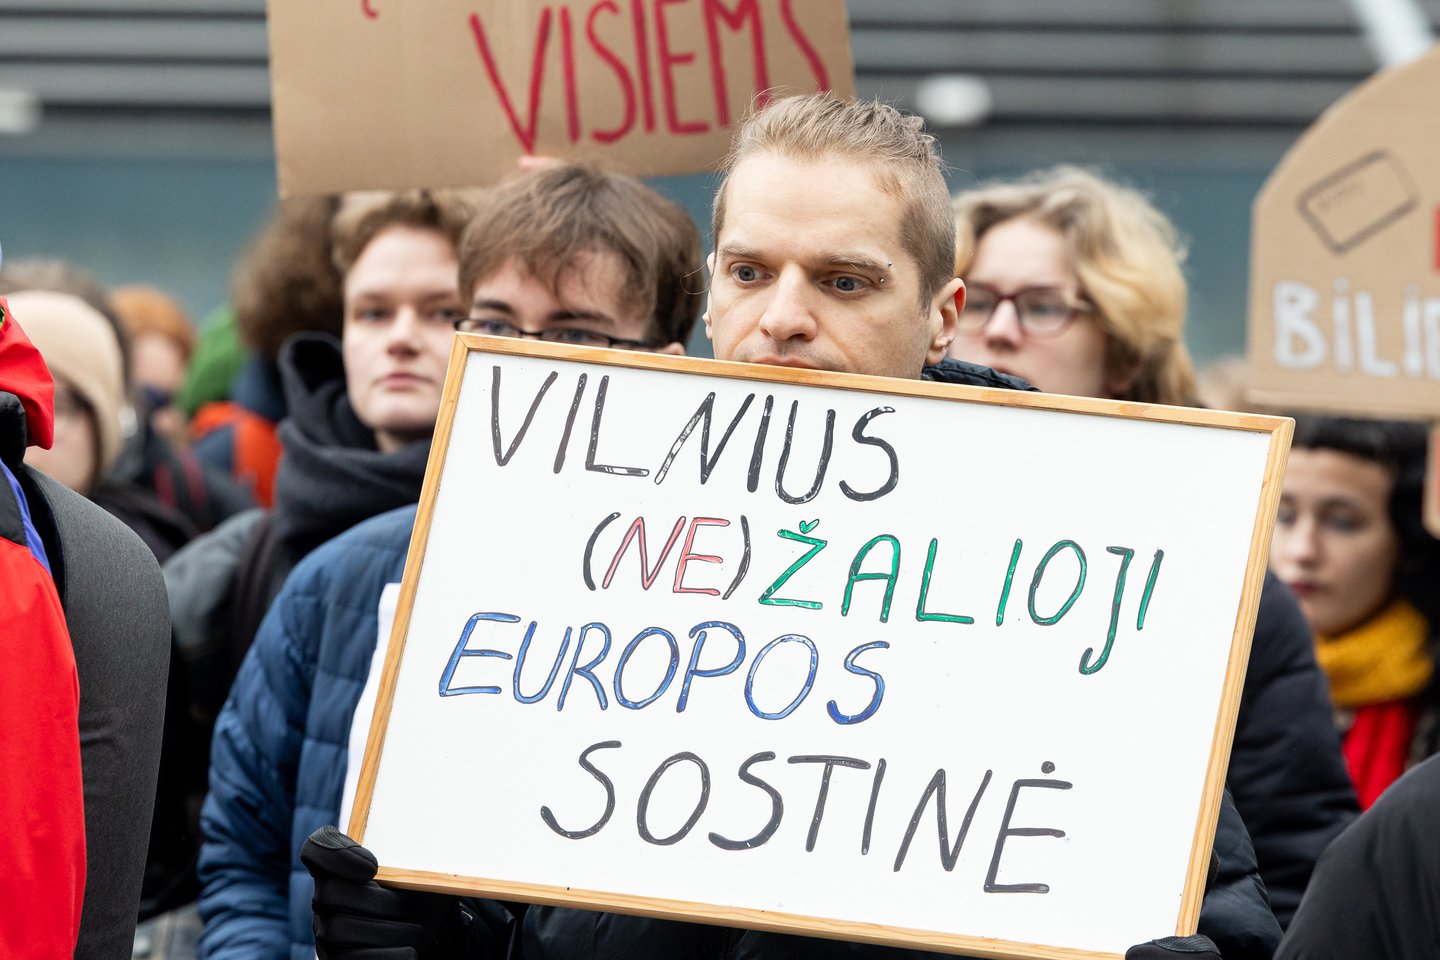 VISIEMS
VILNIUS
(NE)ŽALIOJI
EUROPOS
SOSTINĖ